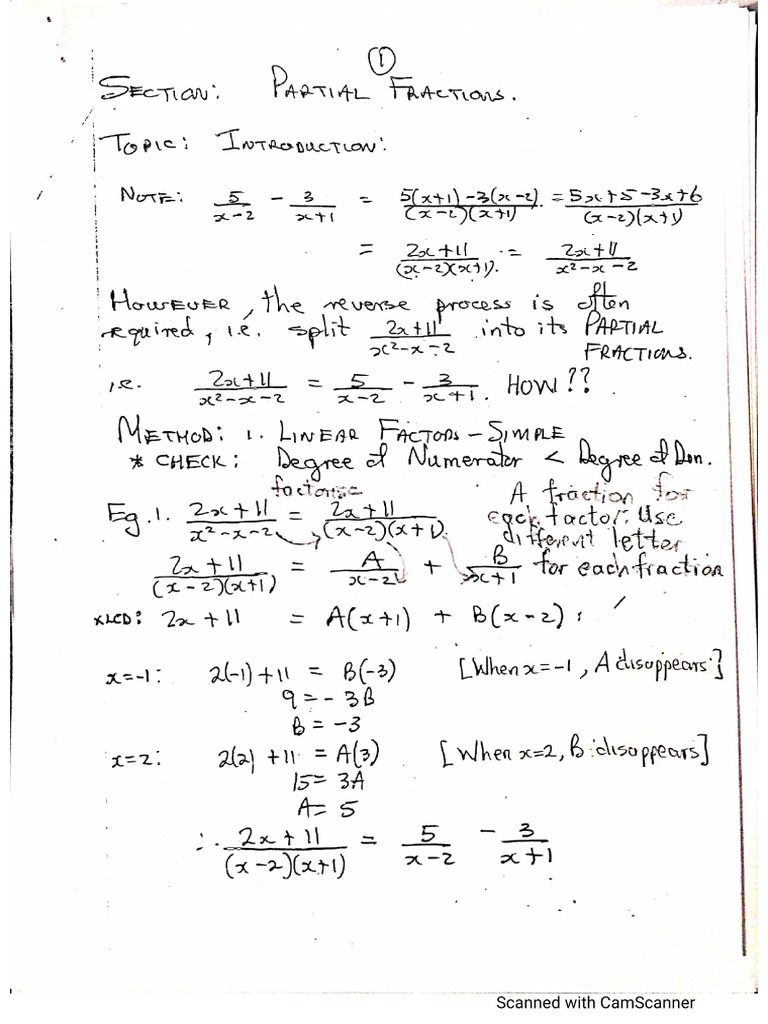 ①
SECTION: PARTIAL FRACTIONS.
TOPIC: INTRODUCTION:
NOTE: 5/(x-2) - 3/(x+1) = (5(x+1)-3(x-2))/((x-2)(x+1)) = (5x+5-3x+6)/((x-2)(x+1))
= (2x+11)/((x-2)(x+1)) = (2x+11)/(x²-x-2)
HOWEVER, the reverse process is often
required, i.e. split (2x+11)/(x²-x-2) into its PARTIAL
FRACTIONS.
i.e. (2x+11)/(x²-x-2) = 5/(x-2) - 3/(x+1). HOW??
METHOD: 1. LINEAR FACTORS - SIMPLE
* CHECK: Degree of Numerator < Degree of Den.
factorise
Eg.1. (2x+11)/(x²-x-2) = (2x+11)/((x-2)(x+1))
A fraction for
each factor. Use
different letter
for each fraction
(2x+11)/((x-2)(x+1)) = A/(x-2) + B/(x+1)
xLCD: 2x+11 = A(x+1) + B(x-2):
x=-1: 2(-1)+11 = B(-3) [When x=-1, A disappears]
9 = -3B
B = -3
x=2: 2(2)+11 = A(3) [When x=2, B disappears]
15 = 3A
A = 5
∴ (2x+11)/((x-2)(x+1)) = 5/(x-2) - 3/(x+1)
Scanned with CamScanner